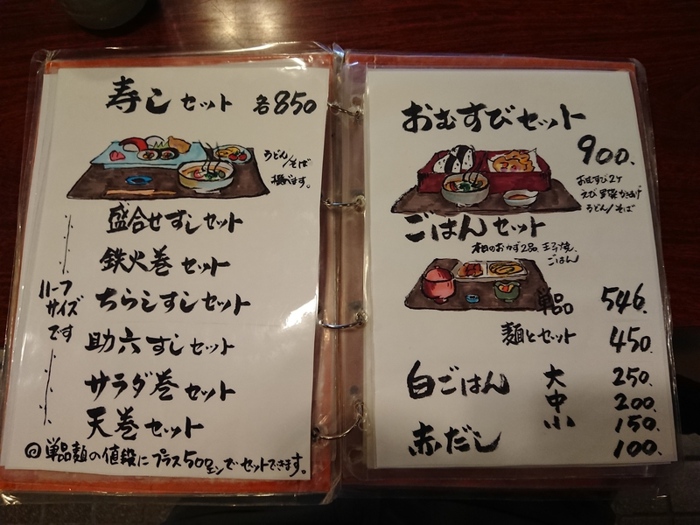 寿しセット 各850
うどん/そば
選べます。
盛合せすしセット
鉄火巻セット
ちらしすしセット
助六すしセット
サラダ巻セット
天巻セット
ハーフ
サイズ
です
◎単品麺の値段にプラス500円でセットできます。
おむすびセット
900.
おむすび2ケ
えび野菜かきあげ
うどん/そば
ごはんセット
本日のおかず2品、玉子焼、
ごはん
単品 546.
麺とセット 450.
白ごはん 大 250.
中 200.
小 150.
赤だし 100.